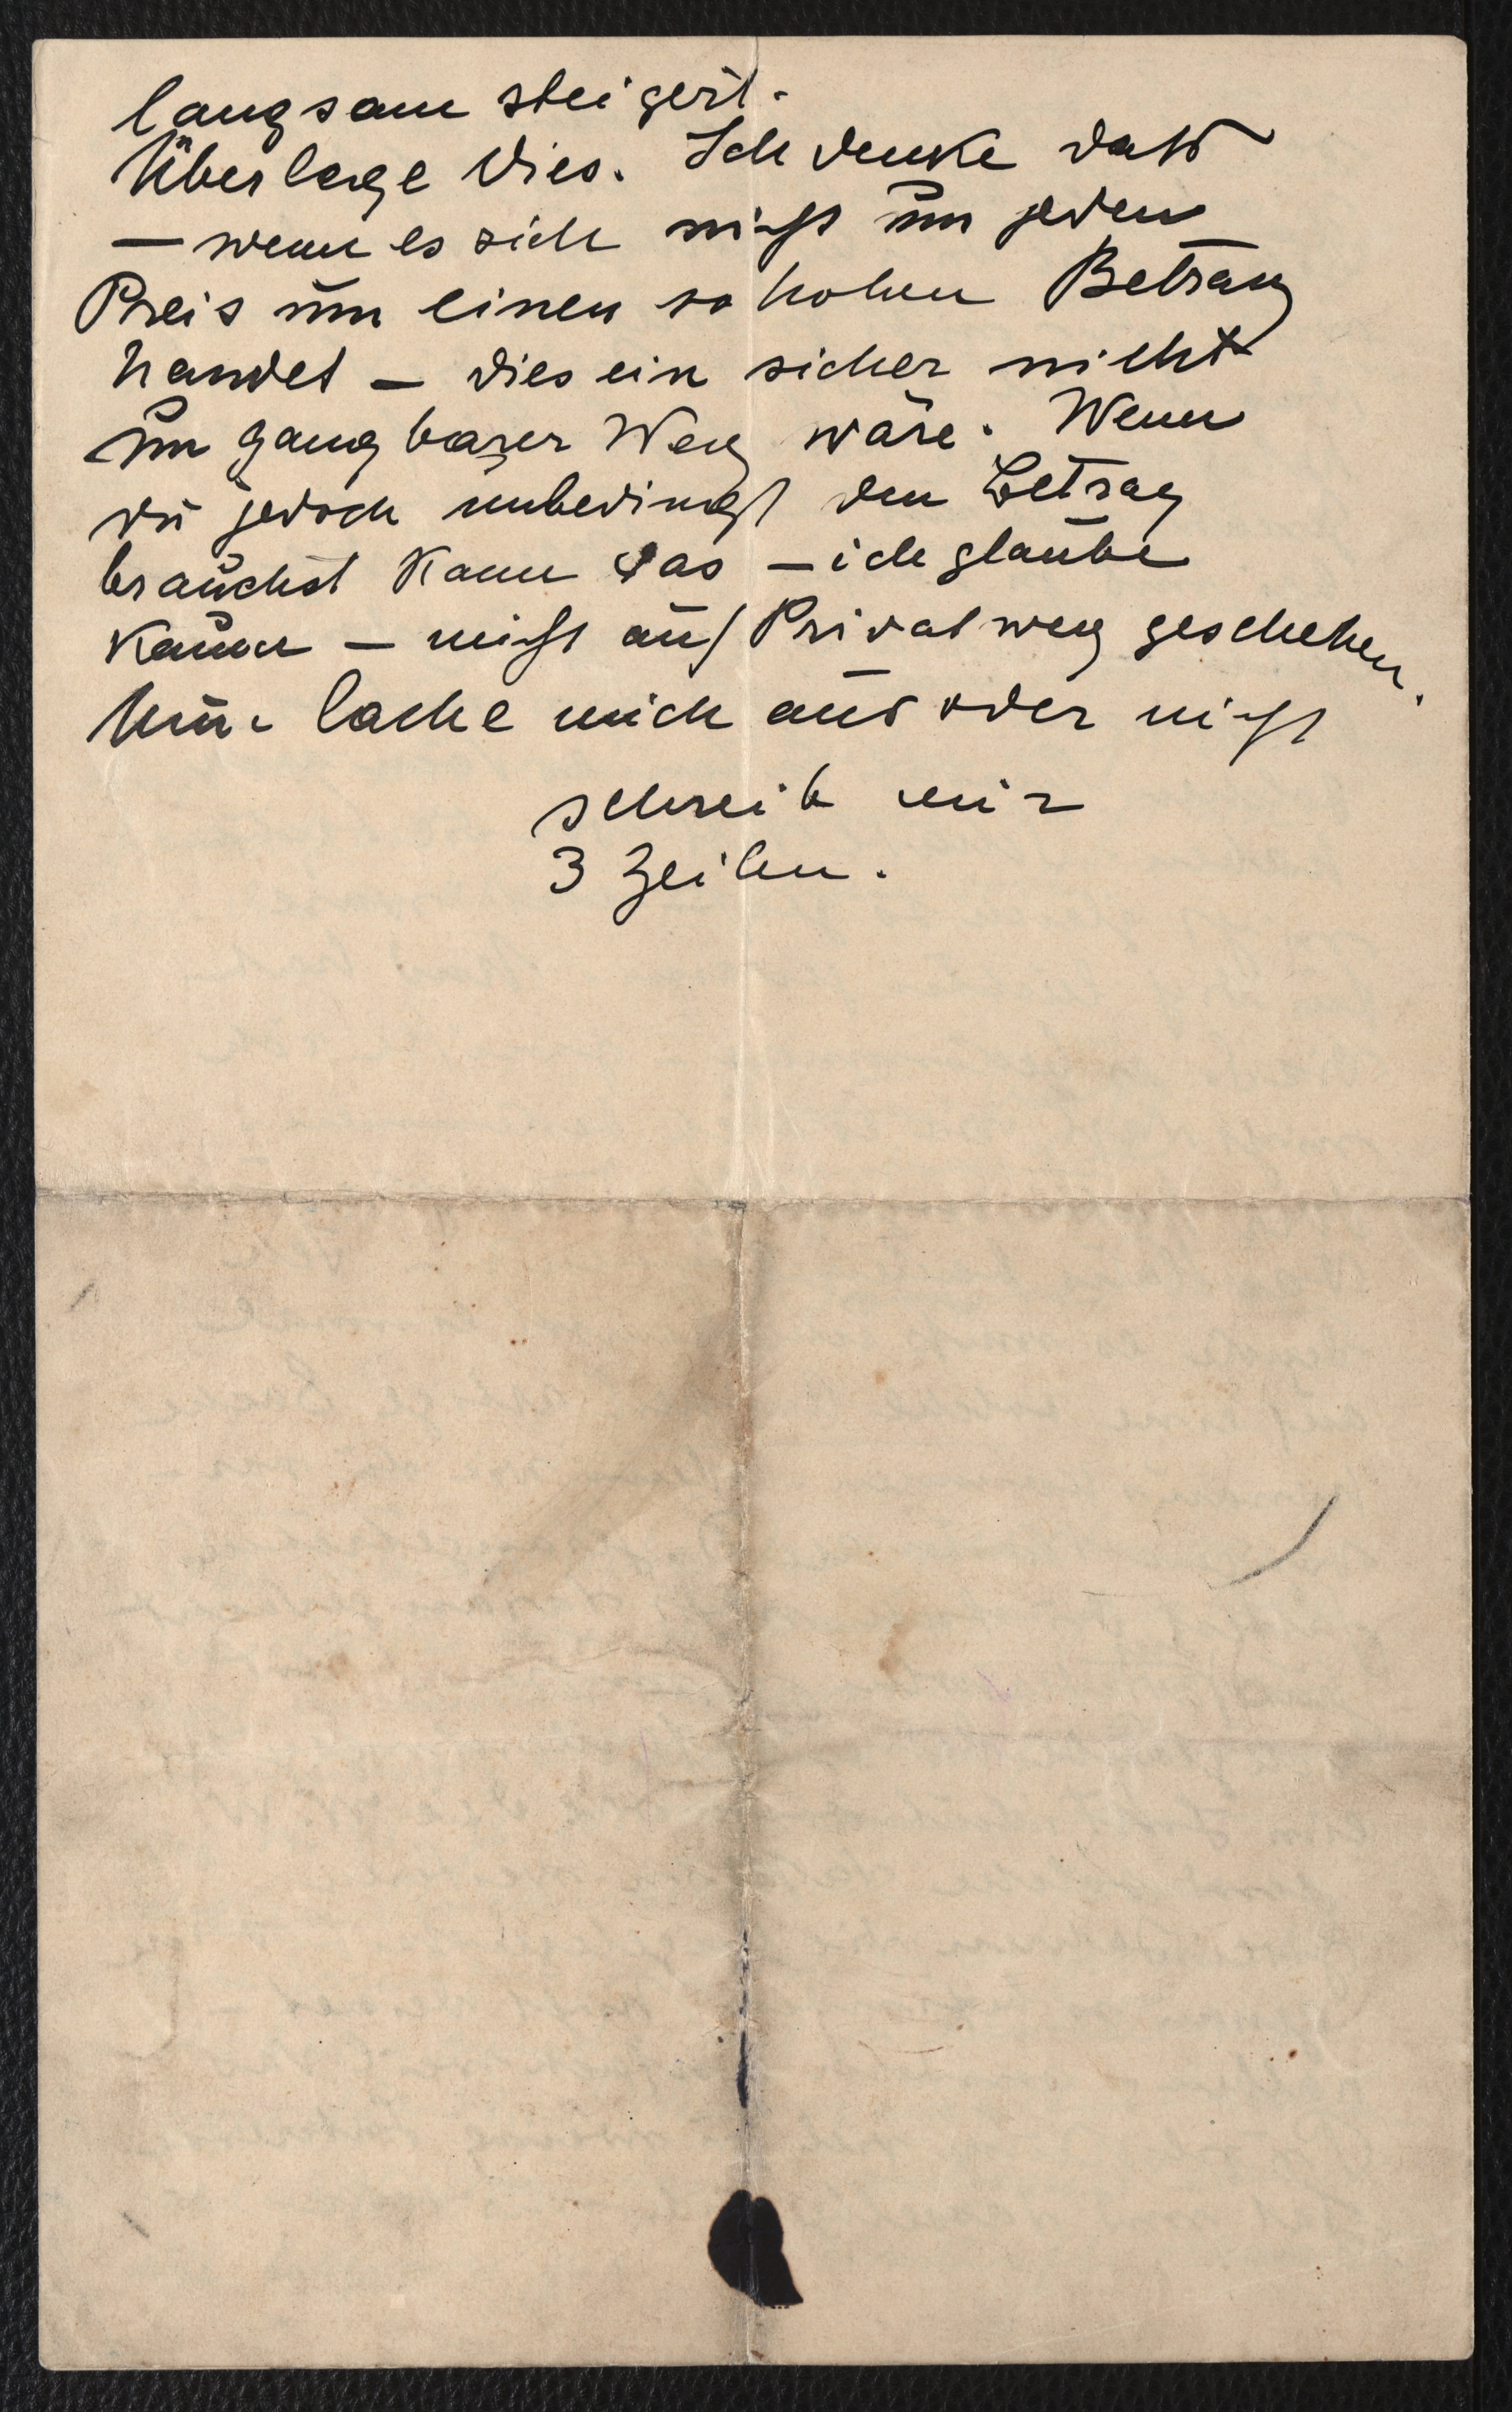 langsam steigert.
Überlege dies. Ich denke dass
— wenn es sich nicht um jeden
Preis um einen so hohen Betrag
handet — dies ein sicher nicht
un gangbarer Weg wäre. Wenn
du jedoch unbedingt den Betrag
brauchst kann das — ich glaube
kaum — nicht auf Privatweg geschehen.
Nun lache mich aus oder nicht
schreib mir
3 Zeilen.